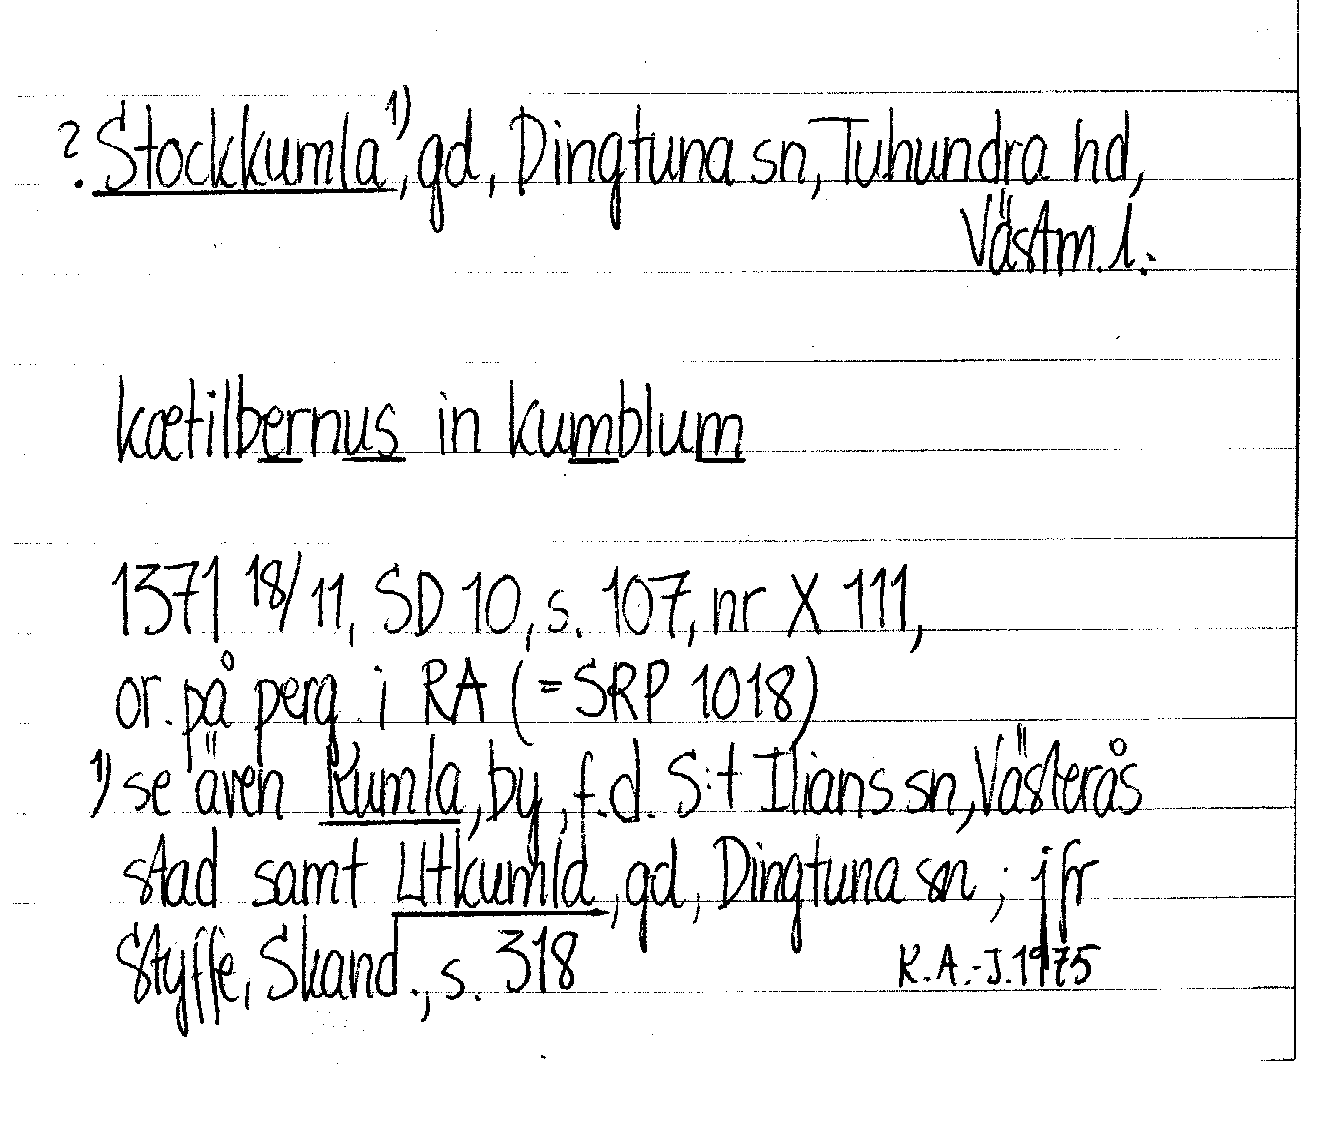 ? Stockkumla¹⁾, gd, Dingtuna sn, Tuhundra hd,
Västm. l.
kætilbernus in kumblum
1371 18/11, SD 10, s. 107, nr X 111,
or. på perg. i RA (=SRP 1018)
1) se även Kumla, by, f.d. S:t Ilians sn, Västerås
stad samt Utkumla, gd, Dingtuna sn; jfr
Styffe, Skand., s. 318
K.A.-J. 1975